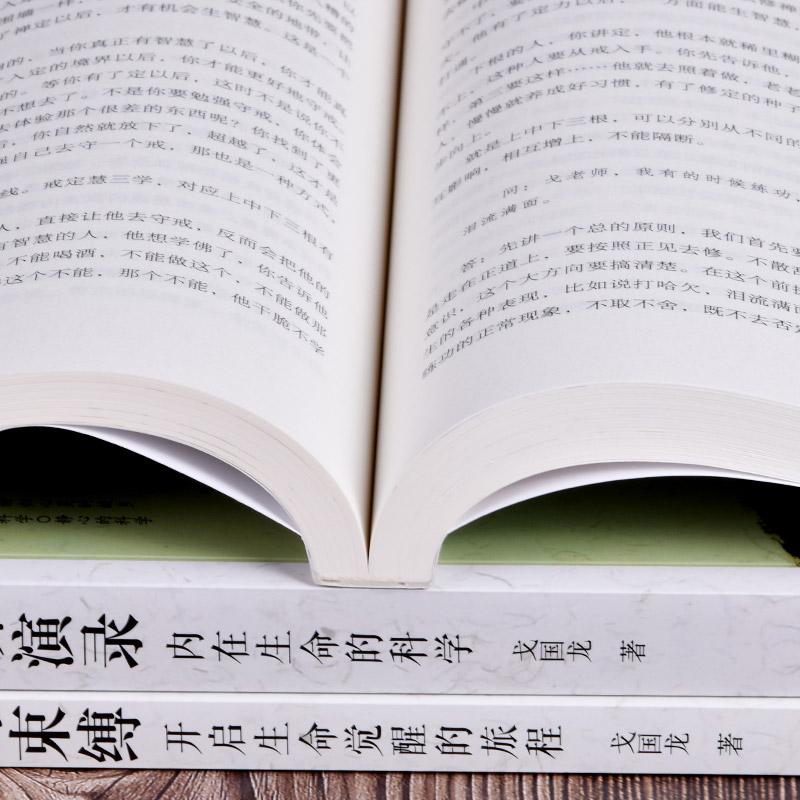 了禅定以后，才有机会生智慧。这是一个
的，当你真正有智慧了以后，你才能真
入定的境界以后，你才能更好地守戒。
的。等你有了定以后，这时不是说你不
不想去了。不是你要勉强守戒，你体会
去体验那个很差的东西呢？你找到了更
后，你自然就放下了，超越了，这才是
强自己去守一个戒，那也是一种方式，
线。戒定慧三学，对应上中下三根有
人，直接让他去守戒，反而会把他的
有智慧的人，他想学佛了，你告诉他
不能喝酒，不能做这个，不能做那
这个不能，那个不能，他干脆不学
下根的人，你讲定，他根本就稀里糊
上，这种人要从戒入手。你先告诉他，
，第二要这样……他就去照着做，老老
人，慢慢就养成好习惯，有了修定的种子
步向上。
就是上中下三根，可以分别从不同的
互影响，相互增上，不能隔断。
问：戈老师，我有的时候练功，
泪流满面。
答：先讲一个总的原则，我们首先要
是走在正道上，要按照正见去修。不散乱
意识，这个大方向要搞清楚。在这个前提
生的各种表现，比如说打哈欠，泪流满面
练功的正常现象，不取不舍，既不去否定
科学〇静心的科学
演录 内在生命的科学 戈国龙 著
束缚 开启生命觉醒的旅程 戈国龙 著